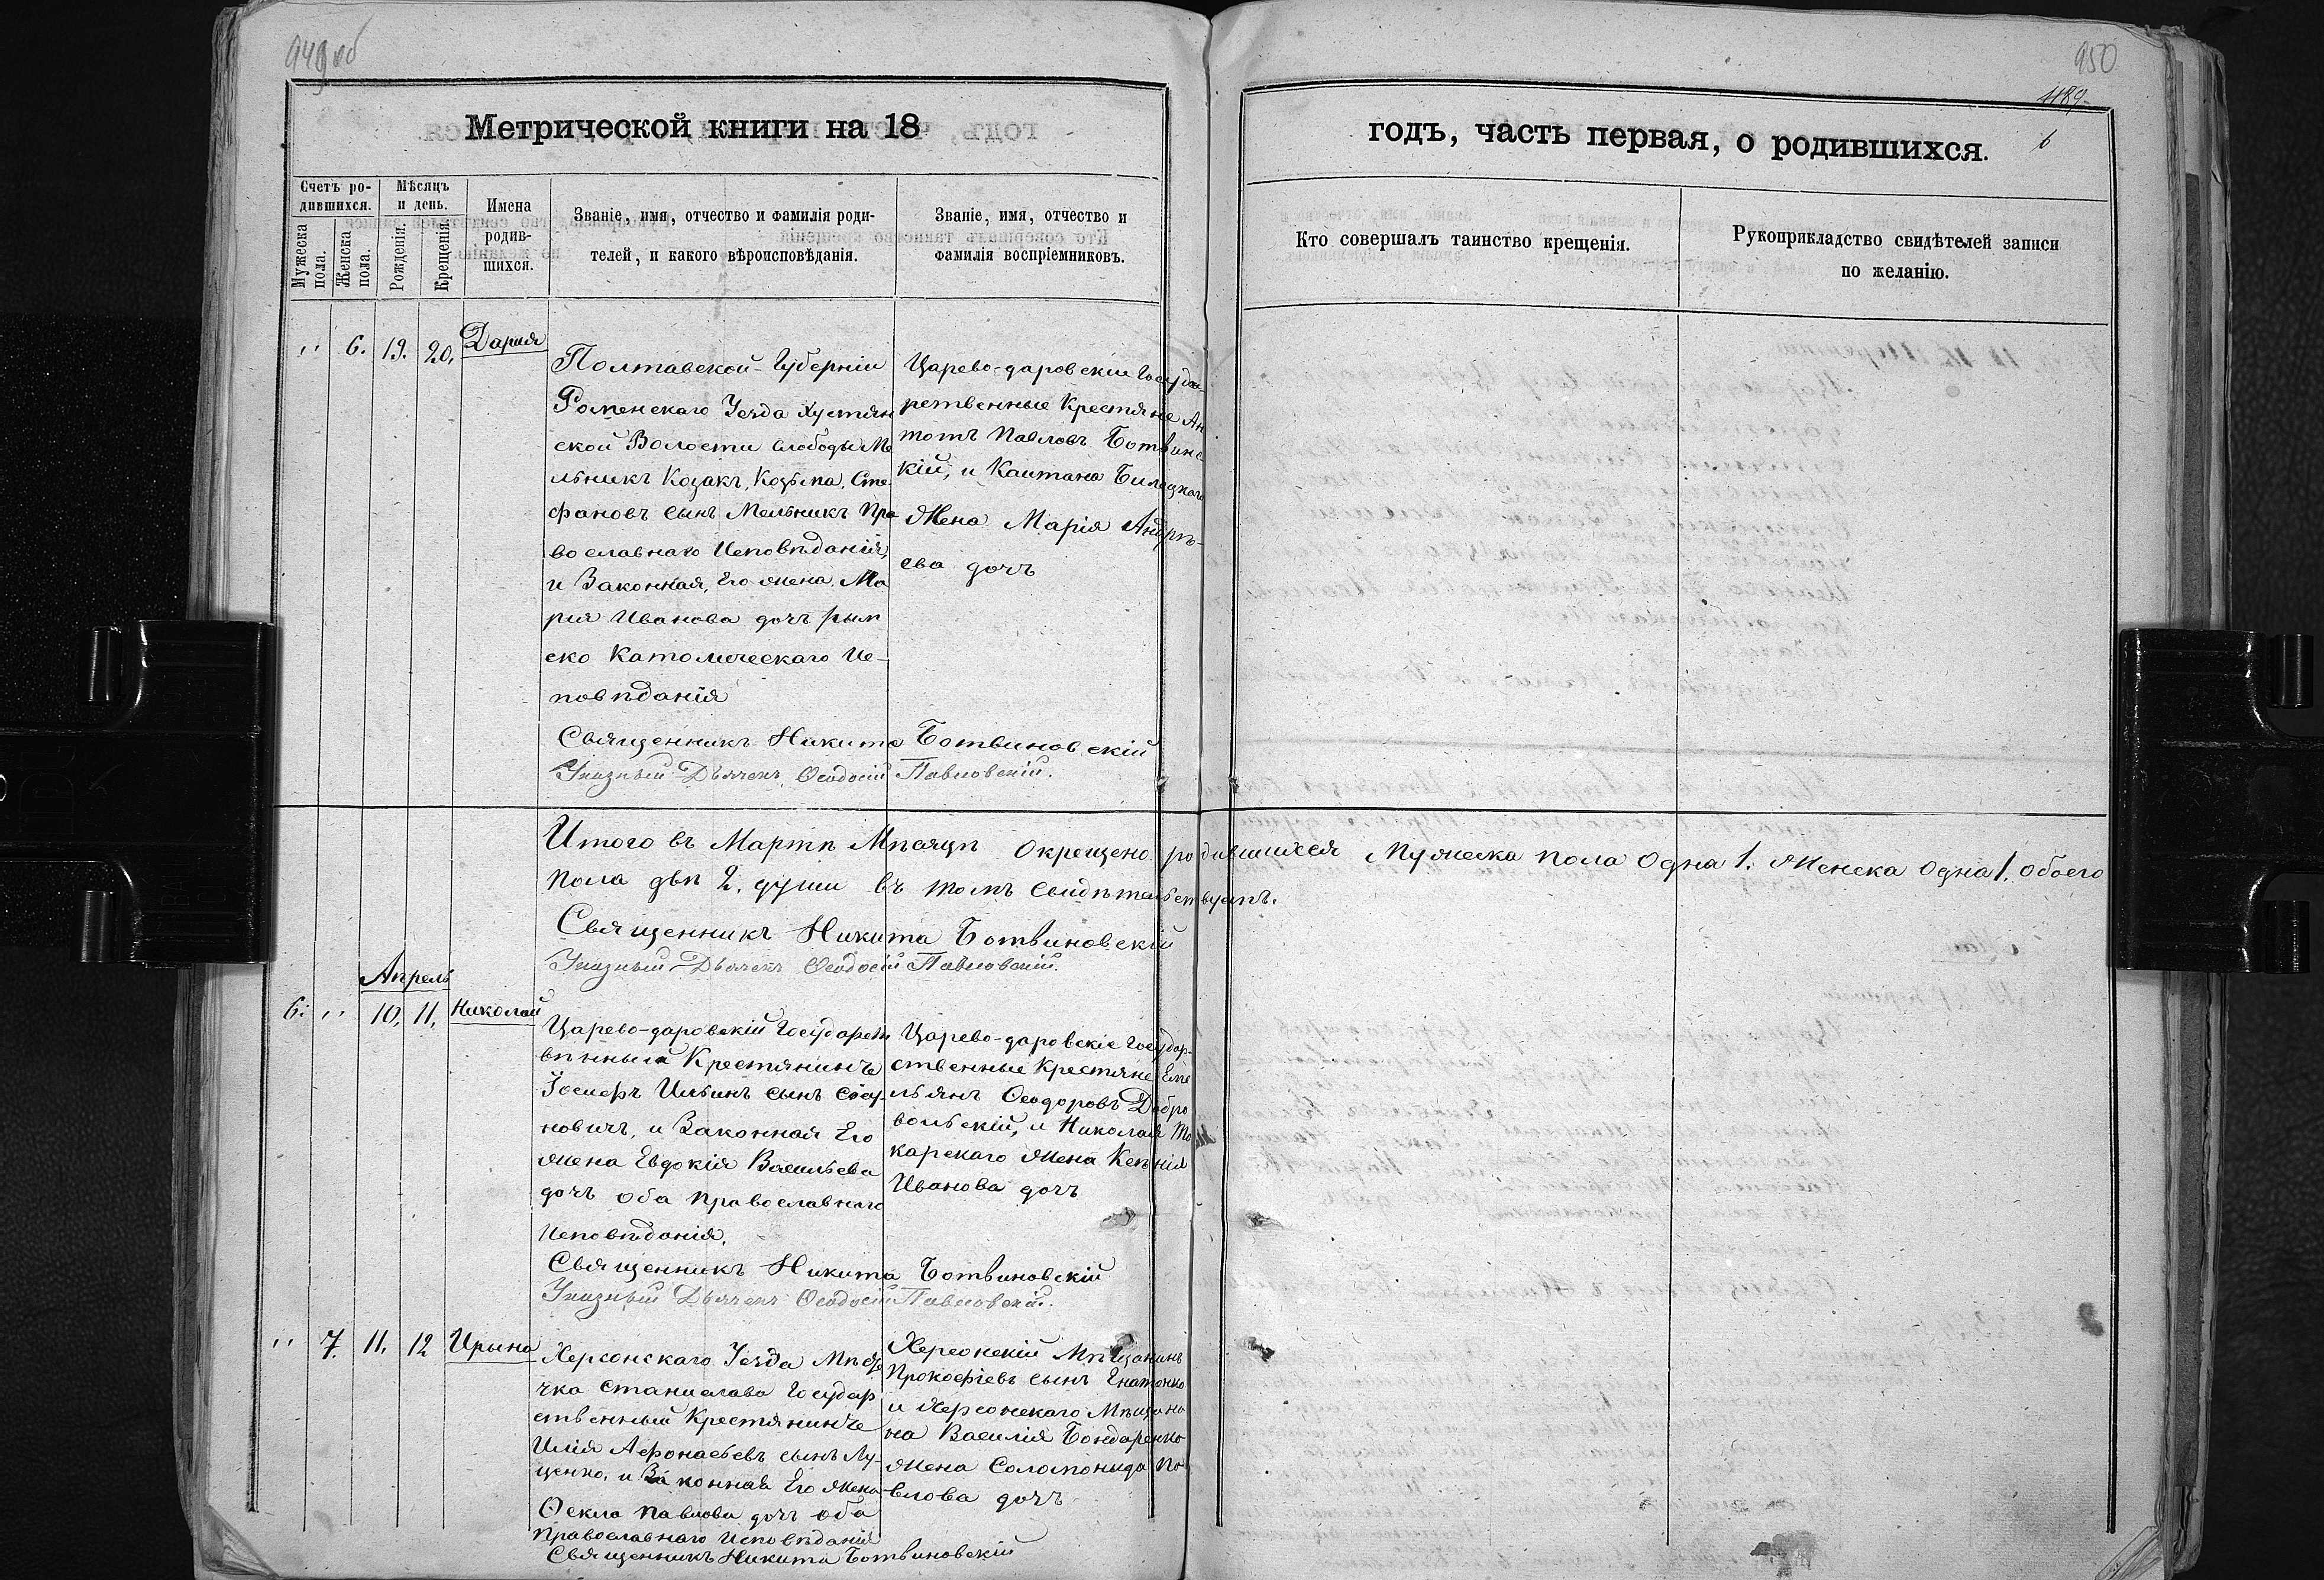 949 об
950
1189
6
Метрической книги на 18
годъ, часть первая, о родившихся.
Счетъ ро-
дившихся.
Мѣсяцъ
и день.
Мужеска
пола.
Женска
пола.
Рожденія.
Крещенія.
Имена
родив-
шихся.
Званіе, имя, отчество и фамилія роди-
телей, и какого вѣроисповѣданія.
Званіе, имя, отчество и
фамилія воспріемниковъ.
Кто совершалъ таинство крещенія.
Рукоприкладство свидѣтелей записи
по желанію.
" 6. 19. 20, Дария
Полтавской-Губерніи
Роменскаго Уезда Хустян
ской Волости слободы Ме
льникъ Козакъ, Козьма, Сте-
фановъ сынъ Мельникъ Пра
вославнаго Исповѣданія,
и Законная, Его жена Ма
рия Иванова дочъ рым
ско Католическаго Ис-
повѣданія
Царево-даровскіи Госуда-
рственные Крестяне Ан
тотъ Павловъ Ботвинс
кій, и Каитана Билецкаго
Жена Марія Андрѣ-
ева дочъ
Священникъ Никита Ботвиновскій
Указный Дьячекъ Ѳеодосій Павловскій.
Итого въ Мартѣ Мѣсяцѣ Окрещено родившихся Мужеска пола Одна 1. Женска Одна 1. Обоего
Пола двѣ 2. души въ томъ свидѣтельствуетъ.
Священникъ Никита Ботвиновскій
Указный-Дьячекъ Ѳеодосій Павловскій.
Апрель
6: " 10, 11, Николай
Царево-даровскій Государст
вѣнныи Крестянинъ
Іосифъ Ильинъ сынъ
новичъ, и Законная Его
жена Евдокія Васильева
дочъ оба православнаго
Исповѣданія,
Царево-даровскіе Государ-
ственные Крестяне Еме
льянъ Ѳеодоровъ Добро
вольскій, и Николая То
карскаго Жена Ксѣнія
Иванова дочъ
Священникъ Никита Ботвиновскій
Указный Дьячекъ Ѳеодосій Павловскій.
" 7. 11. 12 Ирына
Херсонскаго Уезда Мѣсте
чка Станислава Государ
ственный Крестянинъ
Илія Афонасьевъ сынъ Лу-
ценко, и Законная Его жена
Ѳекла Павлова дочъ оба
Православнаго Исповѣданія
Херсонскій Мѣщанинъ
Прокофіевъ сынъ Енатенко
и Херсонскаго Мѣщани
на Василія Бондаренко
Жена Соломонида Па
влова дочъ
Священникъ Никита Ботвиновскій